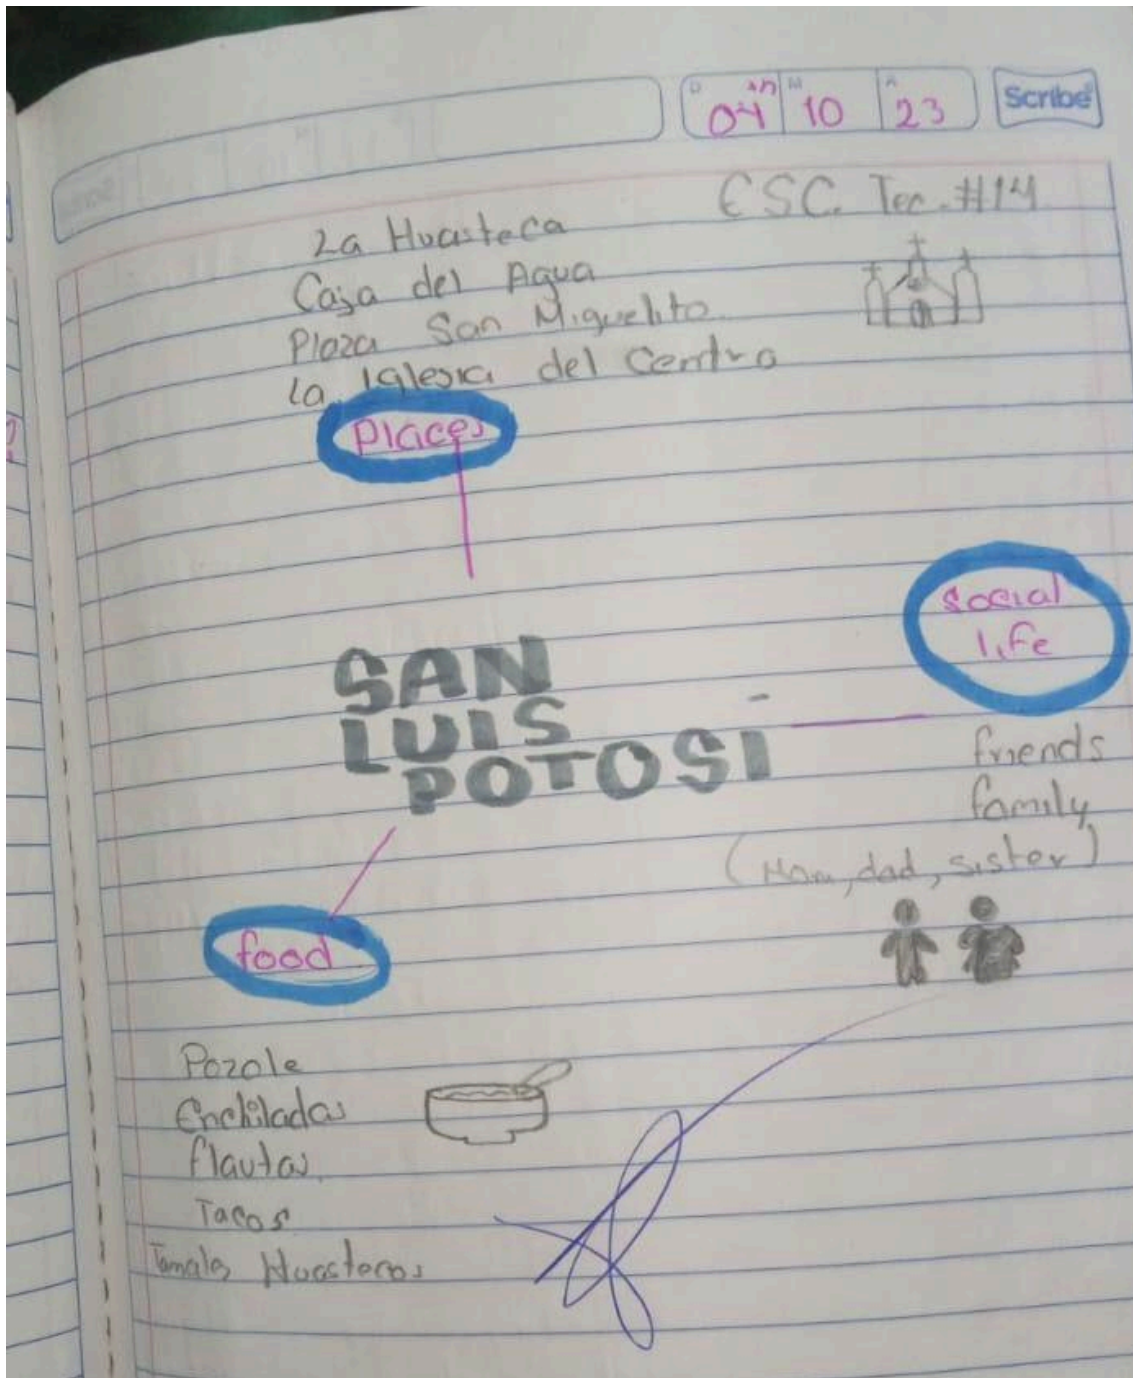 D 04 M 10 A 23
Scribe
ESC. Tec. #14
La Huasteca
Caja del Agua
Plaza San Miguelito
la Iglesia del Centro
Places
social
life
SAN
LUIS
POTOSÍ
friends
family
(Mom, dad, sister)
food
Pozole
Enchiladas
flautas
Tacos
Tamales Huastecos